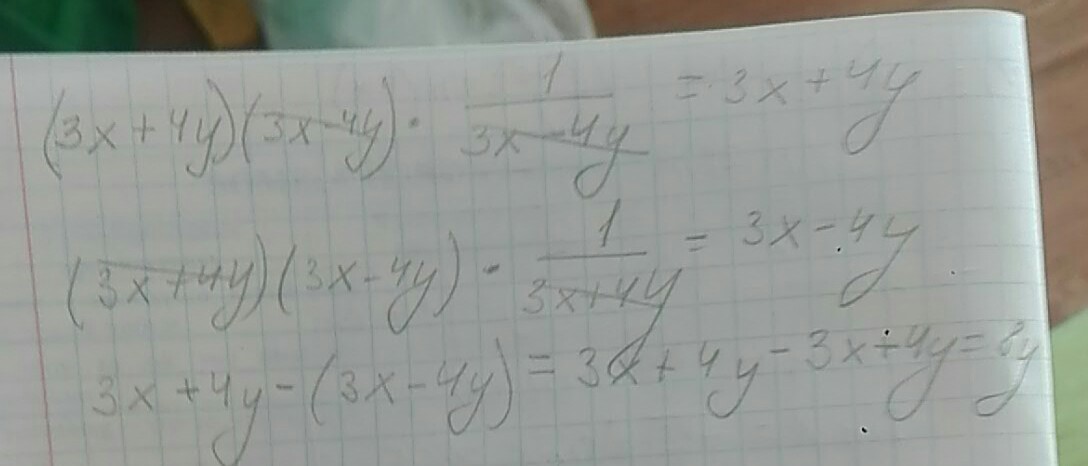 (3x+4y)(3x-4y)·1/(3x-4y)=3x+4y
(3x+4y)(3x-4y)·1/(3x+4y)=3x-4y
3x+4y-(3x-4y)=3x+4y-3x+4y=8y